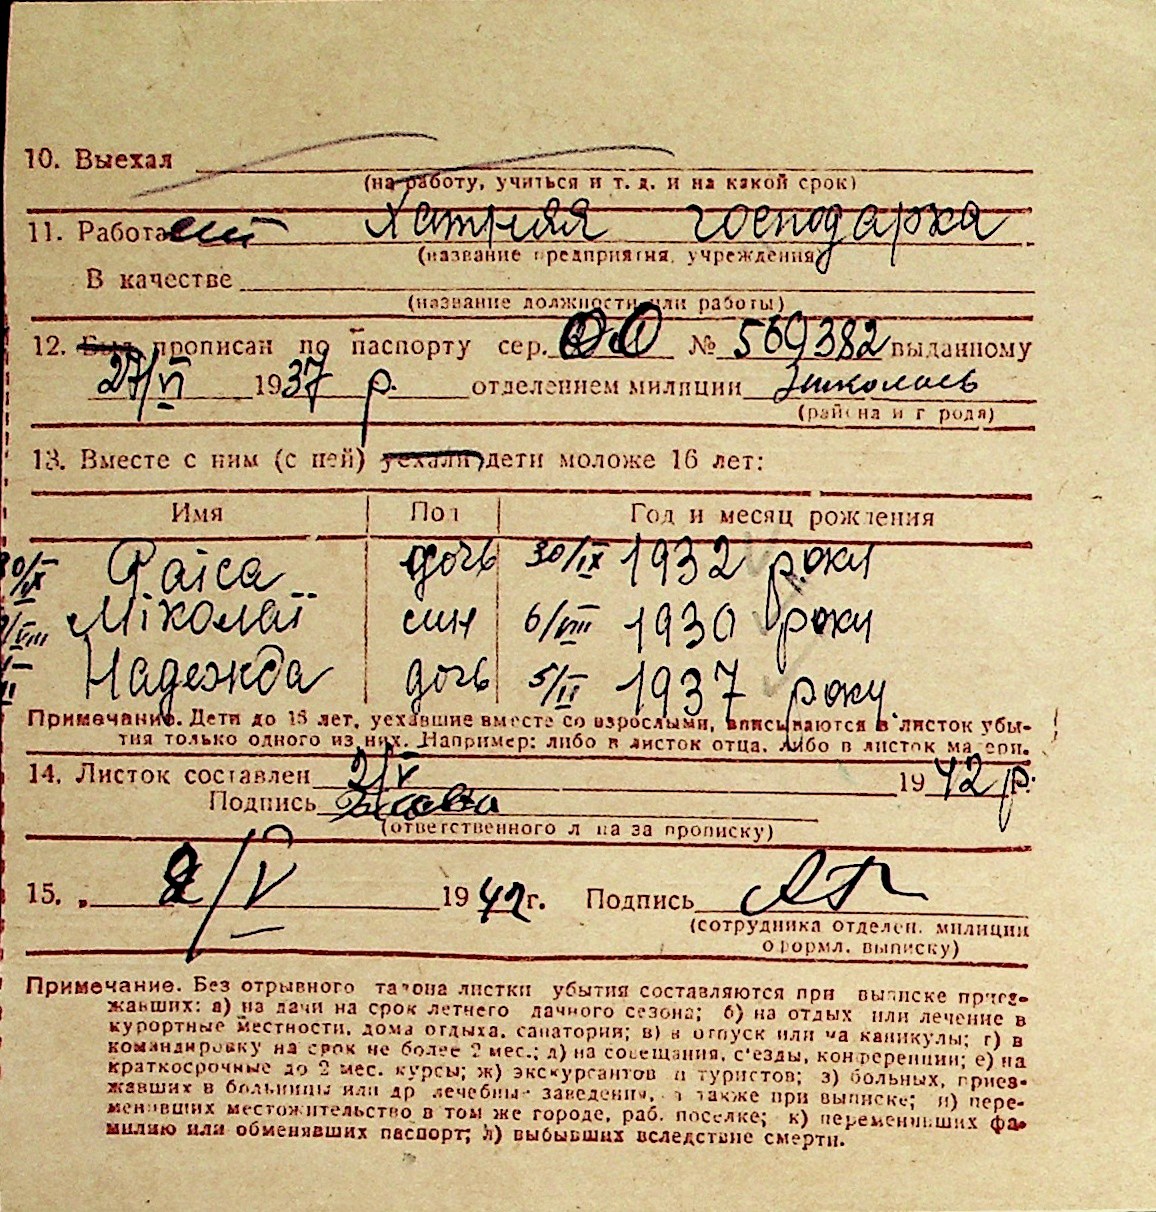 10. Выехал
(на работу, учиться и т. д. и на какой срок)
11. Работает Хатняя господарка
(название предприятия, учреждения)
В качестве
(название должности или работы)
12. Был прописан по паспорту сер. № 569382 выданному
27/VI 1937 р. отделением милиции
(района и города)
13. Вместе с ним (с ней) уехали дети моложе 16 лет:
Имя Пол Год и месяц рождения
30/IX Раїса дочь 30/IX 1932 року
Міколаї син 6/VIII 1930 року
Надежда дочь 5/II 1937 року
Примечание. Дети до 16 лет, уехавшие вместе со взрослыми, вписываются в листок убы-
тия только одного из них. Например: либо в листок отца, либо в листок матери.
14. Листок составлен 2/V 1942 р.
Подпись
(ответственного лица за прописку)
15. „ 2/V 1942 г. Подпись
(сотрудника отделен. милиции
оформл. выписку)
Примечание. Без отрывного талона листки убытия составляются при выписке приез-
жавших: а) на дачи на срок летнего дачного сезона; б) на отдых или лечение в
курортные местности, дома отдыха, санатории; в) в отпуск или на каникулы; г) в
командировку на срок не более 2 мес.; д) на совещания, с'езды, конференции; е) на
краткосрочные до 2 мес. курсы; ж) экскурсантов и туристов; з) больных, приез-
жавших в больницы или др лечебные заведения, а также при выписке; и) пере-
менивших местожительство в том же городе, раб. поселке; к) переменивших фа-
милию или обменявших паспорт; л) выбывших вследствие смерти.